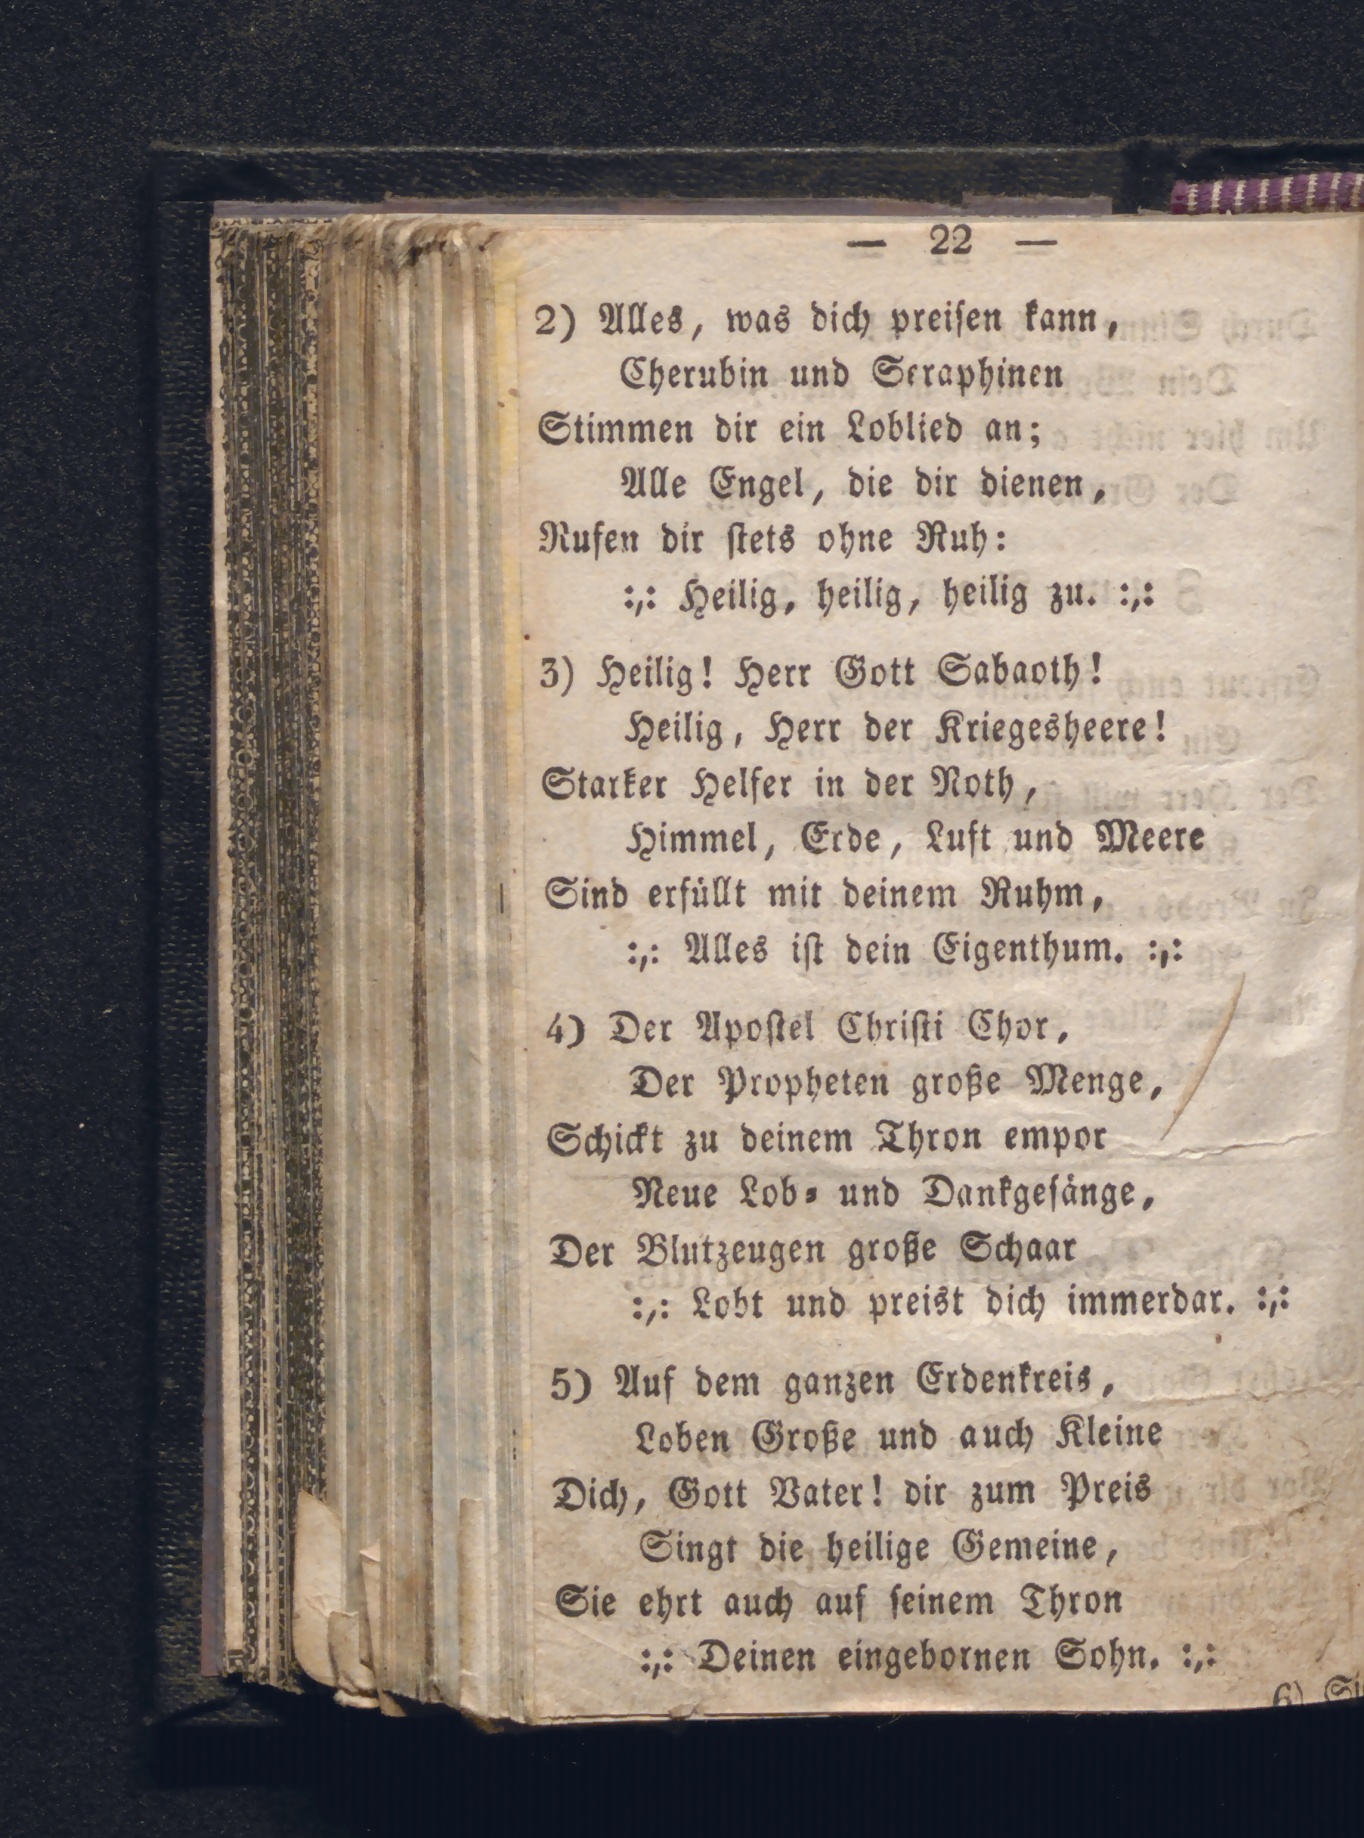 — 22 —
2) Alles, was dich preisen kann,
Cherubin und Seraphinen
Stimmen dir ein Loblied an;
Alle Engel, die dir dienen,
Rufen dir stets ohne Ruh:
:,: Heilig, heilig, heilig zu. :,:
3) Heilig! Herr Gott Sabaoth!
Heilig, Herr der Kriegesheere!
Starker Helfer in der Noth,
Himmel, Erde, Luft und Meere
Sind erfüllt mit deinem Ruhm,
:,: Alles ist dein Eigenthum. :,:
4) Der Apostel Christi Chor,
Der Propheten große Menge,
Schickt zu deinem Thron empor
Neue Lob- und Dankgesänge,
Der Blutzeugen große Schaar
:,: Lobt und preist dich immerdar. :,:
5) Auf dem ganzen Erdenkreis,
Loben Große und auch Kleine
Dich, Gott Vater! dir zum Preis
Singt die heilige Gemeine,
Sie ehrt auch auf seinem Thron
:,: Deinen eingebornen Sohn. :,:
6)